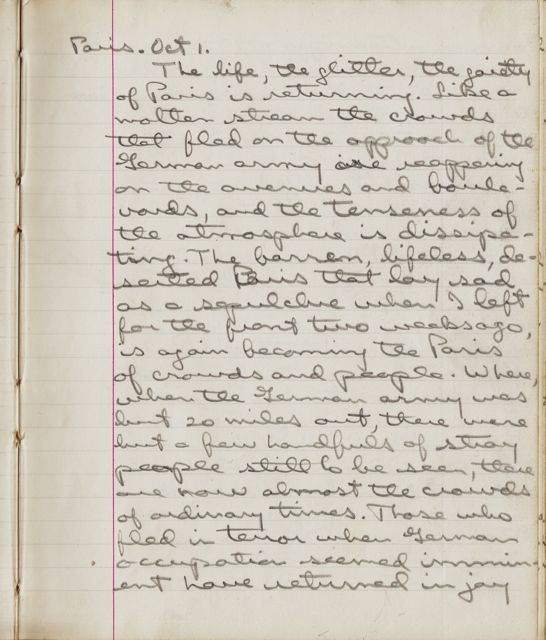 Paris. Oct 1.
The life, the glitter, the gaiety
of Paris is returning. Like a
molten stream the crowds
that fled on the approach of the
German army are reappering
on the avenues and boule-
vards, and the tenseness of
the atmosphere is dissipa-
ting. The barren, lifeless, de-
serted Paris that lay sad
as a sepulchre when I left
for the front two weeks ago,
is again becoming the Paris
of crowds and people. Where,
when the German army was
but 20 miles out, there were
but a few handfuls of stray
people still to be seen, there
are now almost the crowds
of ordinary times. Those who
fled in terror when German
occupation seemed immin-
ent have returned in joy